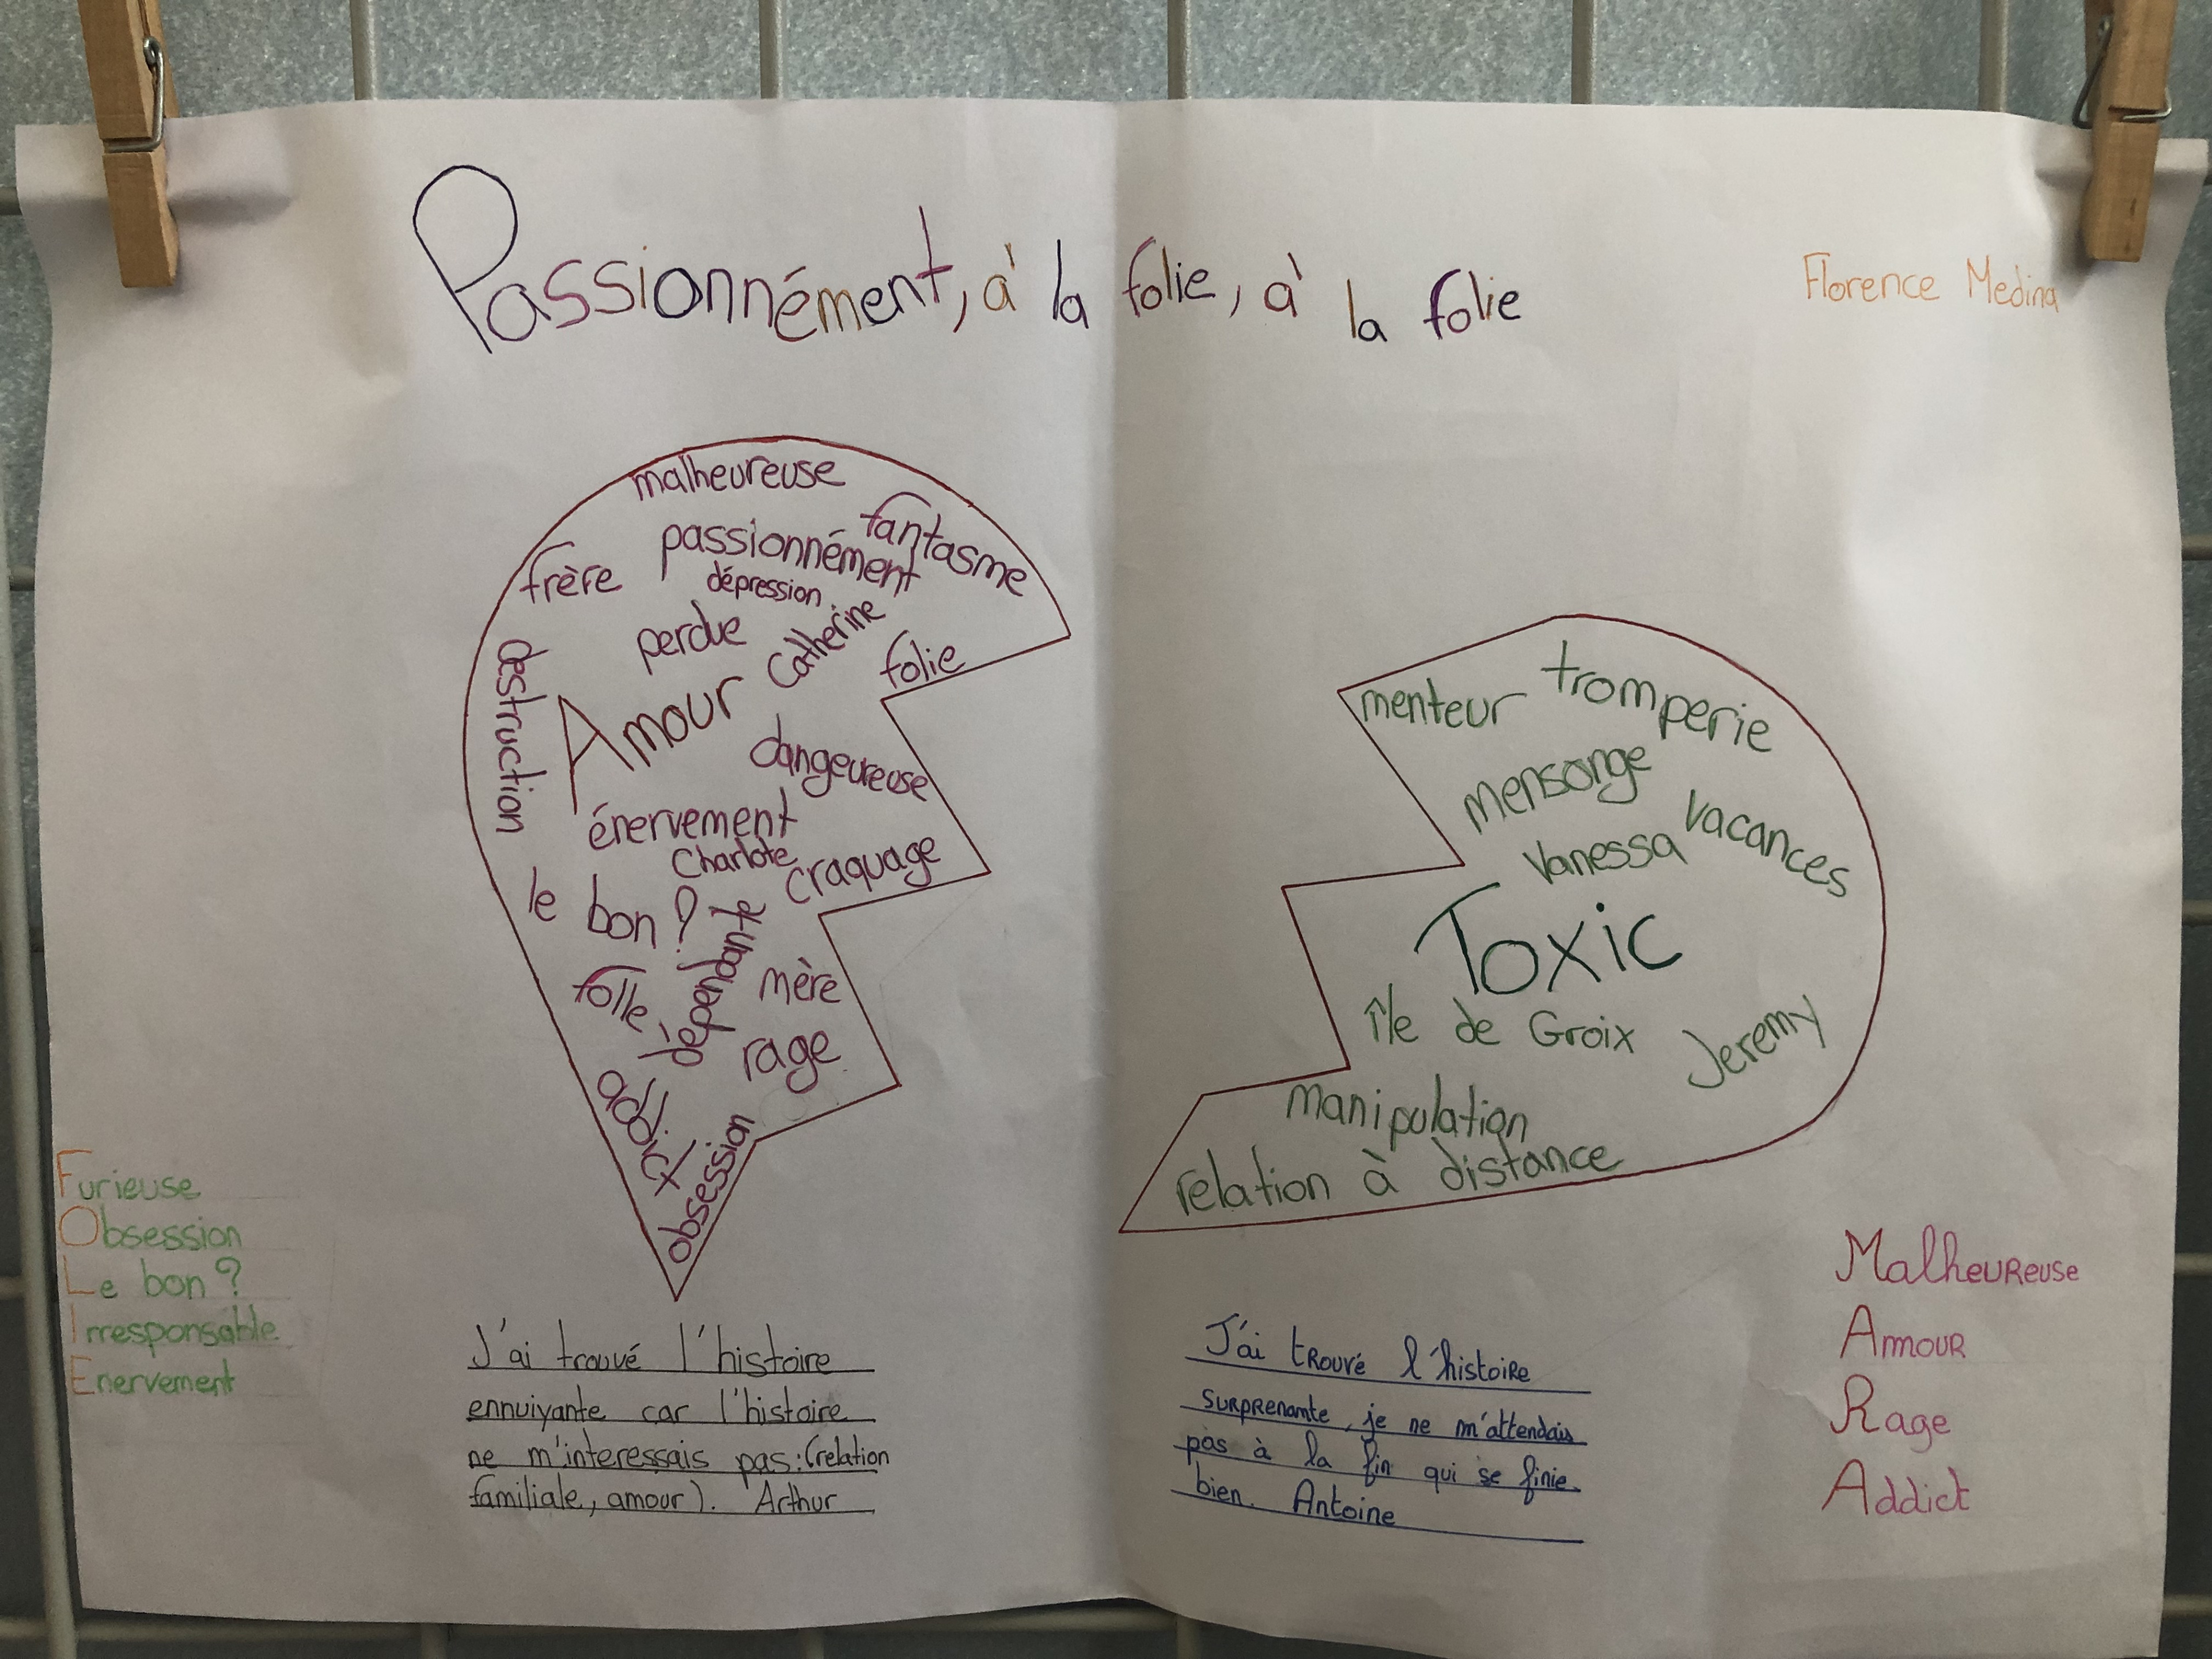 Passionnément, à la folie, à la folie
Florence Medina
malheureuse
fantasme
passionnément
frère
dépression
perdue
Catherine
folie
destruction
Amour
dangeureuse
énervement
Charlote
craquage
le bon ?
dépendante
folle
mère
rage
addict
obsession
menteur
tromperie
mensonge
vacances
Vanessa
Toxic
île de Groix
Jeremy
manipulation
relation à distance
Furieuse
Obsession
Le bon ?
Irresponsable
Enervement
J'ai trouvé l'histoire
ennuiyante car l'histoire
ne m'interessais pas : (relation
familiale, amour). Arthur
J'ai trouvé l'histoire
surprenante, je ne m'attendais
pas à la fin qui se finie
bien. Antoine
Malheureuse
Amour
Rage
Addict